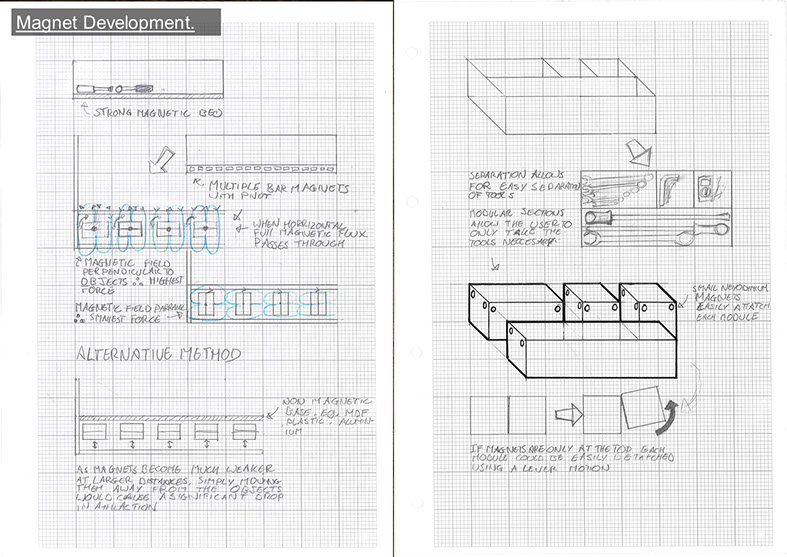 Magnet Development.
STRONG MAGNETIC BED
MULTIPLE BAR MAGNETS
WITH PIVOT
WHEN HORRIZONTAL
FULL MAGNETIC FLUX
PASSES THROUGH
MAGNETIC FIELD
PERPENDICULAR TO
OBJECTS ∴ HIGHEST
FORCE
MAGNETIC FIELD
∴ SMALLEST FORCE
ALTERNATIVE METHOD
NON MAGNETIC
BASE. EG. MDF
PLASTIC. ALUMIN-
IUM
AS MAGNETS BECOME MUCH WEAKER
AT LARGER DISTANCES, SIMPLY MOVING
THEM AWAY FROM THE OBJECTS
WOULD CAUSE A SIGNIFICANT DROP
IN ATTRACTION
SEPARATION ALLOWS
FOR EASY SEPARATION
OF TOOLS
MODULAR SECTIONS
ALLOW THE USER TO
ONLY TAKE THE
TOOLS NECESSARY
SMALL NEYODYMIUM
MAGNETS
EASILY ATTATCH
EACH MODULE
IF MAGNETS ARE ONLY AT THE TOP EACH
MODULE COULD BE EASILY DETATCHED
USING A LEVER MOTION